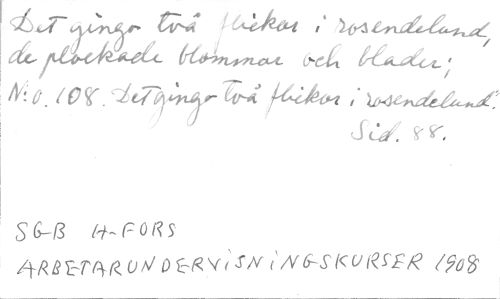 Det gingo två flickor i rosendelund,
de plockade blommor och blader;
N:o. 108. Det gingo två flickor i rosendelund".
Sid. 88.
SGB H-FORS
ARBETARUNDERVISNINGSKURSER 1908